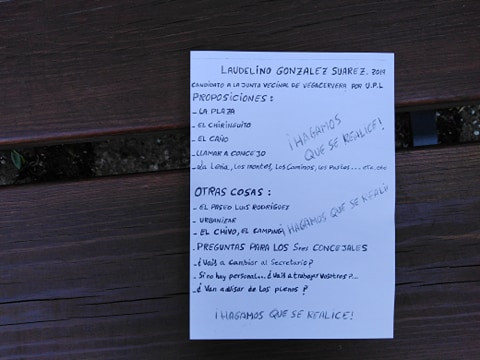 LAUDELINO GONZALEZ SUAREZ. 2019
CANDIDATO A LA JUNTA VECINAL DE VEGACERVERA POR U.P.L
PROPOSICIONES:
- LA PLAZA
- EL CHIRINGUITO
- EL CAÑO
- LLAMAR A CONCEJO
- La Leña, los montes, los Caminos, los Pastos... etc. etc
¡HAGAMOS
QUE SE REALICE!
OTRAS COSAS:
- EL PASEO LUIS RODRÍGUEZ
- URBANIZAR
- EL CHIVO, EL CAMPING
¡HAGAMOS QUE SE REALICE
- PREGUNTAS PARA LOS Sres CONCEJALES
- ¿Vais a cambiar al Secretario?
- Si no hay personal... ¿Vais a trabajar vosotros?...
- ¿Van a avisar de los plenos?
¡HAGAMOS QUE SE REALICE!